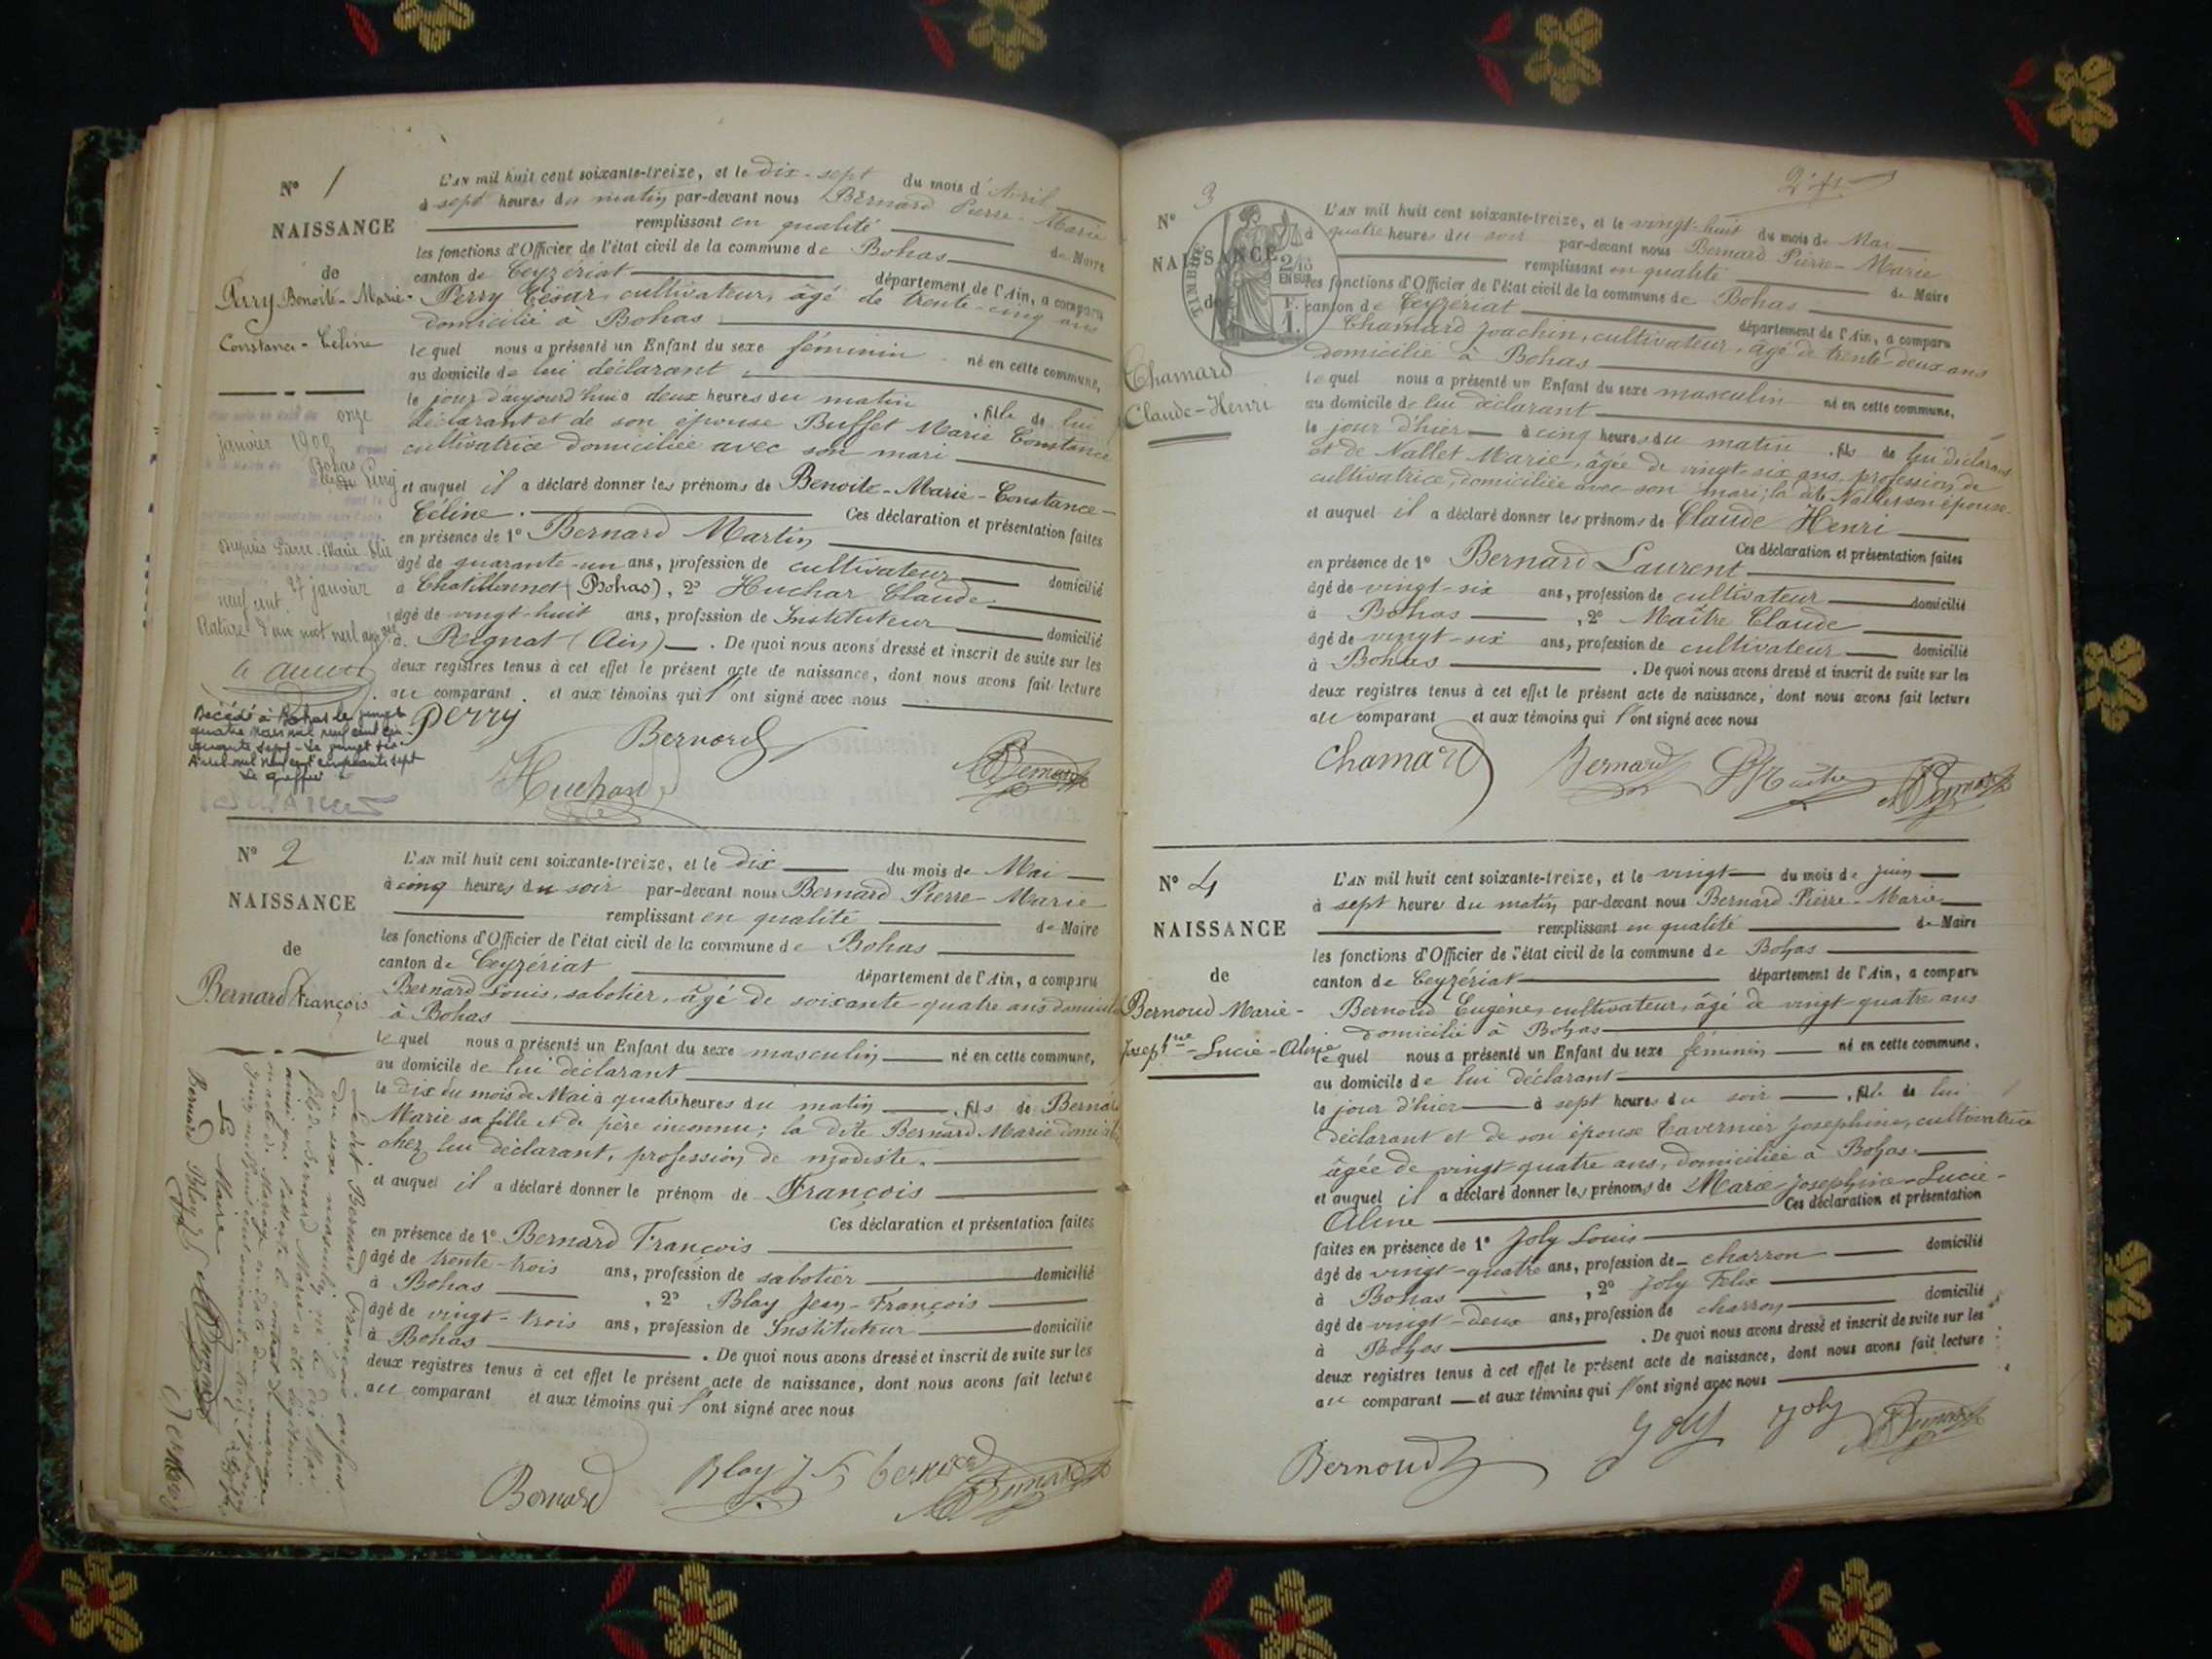 N° 1
NAISSANCE
de
Perry Benoite-Marie-
Constance-Céline
L'AN mil huit cent soixante-treize, et le dix-sept du mois d'Avril
à sept heures du matin par-devant nous Bernard Pierre-Marie
remplissant en qualité de Maire
les fonctions d'Officier de l'état civil de la commune de Bohas
canton de Ceyzériat département de l'Ain, a comparu
Perry César, cultivateur, âgé de trente-cinq ans
domicilié à Bohas
lequel nous a présenté un Enfant du sexe féminin né en cette commune,
au domicile de lui déclarant
le jour d'aujourd'hui à deux heures du matin, fille de lui
déclarant et de son épouse Buffet Marie Constance
cultivatrice domiciliée avec son mari
et auquel il a déclaré donner les prénoms de Benoite-Marie-Constance-
Céline. Ces déclaration et présentation faites
en présence de 1° Bernard Martin
âgé de quarante-un ans, profession de cultivateur domicilié
à Chatillonnet (Bohas), 2° Huchar Claude
âgé de vingt-huit ans, profession de Instituteur domicilié
à Reignat (Ain). De quoi nous avons dressé et inscrit de suite sur les
deux registres tenus à cet effet le présent acte de naissance, dont nous avons fait lecture
au comparant et aux témoins qui l'ont signé avec nous
Perry
Bernard
Huchard
onze
janvier 1908
Bohas
Perry
Dupuis Pierre-Marie
27 janvier
neuf cent
Rature d'un mot nul
Décédé à Bohas le vingt
quatre mars mil neuf cent cin-
quante sept - Le vingt six
Avril mil neuf cent cinquante sept
Le greffier
N° 2
NAISSANCE
de
Bernard François
L'AN mil huit cent soixante-treize, et le dix du mois de Mai
à cinq heures du soir par-devant nous Bernard Pierre-Marie
remplissant en qualité de Maire
les fonctions d'Officier de l'état civil de la commune de Bohas
canton de Ceyzériat département de l'Ain, a comparu
Bernard Louis, sabotier, âgé de soixante-quatre ans domicilié
à Bohas
lequel nous a présenté un Enfant du sexe masculin né en cette commune,
au domicile de lui déclarant
le dix du mois de Mai à quatre heures du matin, fils de Bernard
Marie sa fille et de père inconnu; la dite Bernard Marie domiciliée
chez lui déclarant, profession de modiste.
et auquel il a déclaré donner le prénom de François
Ces déclaration et présentation faites
en présence de 1° Bernard François
âgé de trente-trois ans, profession de sabotier domicilié
à Bohas, 2° Blay Jean-François
âgé de vingt-trois ans, profession de Instituteur domicilié
à Bohas. De quoi nous avons dressé et inscrit de suite sur les
deux registres tenus à cet effet le présent acte de naissance, dont nous avons fait lecture
au comparant et aux témoins qui l'ont signé avec nous
Bernard
Blay J F
Bernard
Le dit Bernard François enfant
du sexe masculin né le dix Mai
fils de Bernard Marie a été légitimé
ainsi que l'atteste le contrat de mariage
Le Maire
Bernard Blay J F
N° 3
NAISSANCE
de
TIMBRE
2/10
EN SUS
F.
1.
Chamard
Claude-Henri
L'AN mil huit cent soixante-treize, et le vingt-huit du mois de Mai
à quatre heures du soir par-devant nous Bernard Pierre-Marie
remplissant en qualité de Maire
les fonctions d'Officier de l'état civil de la commune de Bohas
canton de Ceyzériat département de l'Ain, a comparu
Chamard Joachin, cultivateur, âgé de trente-deux ans
domicilié à Bohas
lequel nous a présenté un Enfant du sexe masculin né en cette commune,
au domicile de lui déclarant
le jour d'hier à cinq heures du matin, fils de lui déclarant
et de Nallet Marie, âgée de vingt-six ans, profession de
cultivatrice, domiciliée avec son mari; la dite Nallet son épouse
et auquel il a déclaré donner les prénoms de Claude Henri
Ces déclaration et présentation faites
en présence de 1° Bernard Laurent
âgé de vingt-six ans, profession de cultivateur domicilié
à Bohas, 2° Maître Claude
âgé de vingt-six ans, profession de cultivateur domicilié
à Bohas. De quoi nous avons dressé et inscrit de suite sur les
deux registres tenus à cet effet le présent acte de naissance, dont nous avons fait lecture
au comparant et aux témoins qui l'ont signé avec nous
Chamard
Bernard
Maître
N° 4
NAISSANCE
de
Bernoud Marie-
Josephine-Lucie-Aline
L'AN mil huit cent soixante-treize, et le vingt du mois de juin
à sept heures du matin par-devant nous Bernard Pierre-Marie
remplissant en qualité de Maire
les fonctions d'Officier de l'état civil de la commune de Bohas
canton de Ceyzériat département de l'Ain, a comparu
Bernoud Eugène, cultivateur, âgé de vingt-quatre ans
domicilié à Bohas
lequel nous a présenté un Enfant du sexe féminin né en cette commune,
au domicile de lui déclarant
le jour d'hier à sept heures du soir, fille de lui
déclarant et de son épouse Tavernier Josephine, cultivatrice
âgée de vingt-quatre ans, domiciliée à Bohas.
et auquel il a déclaré donner les prénoms de Marie-Josephine-Lucie-
Aline Ces déclaration et présentation
faites en présence de 1° Joly Louis
âgé de vingt-quatre ans, profession de charron domicilié
à Bohas, 2° Joly Felix
âgé de vingt-deux ans, profession de charron domicilié
à Bohas. De quoi nous avons dressé et inscrit de suite sur les
deux registres tenus à cet effet le présent acte de naissance, dont nous avons fait lecture
au comparant et aux témoins qui l'ont signé avec nous
Bernoud
Joly
Joly